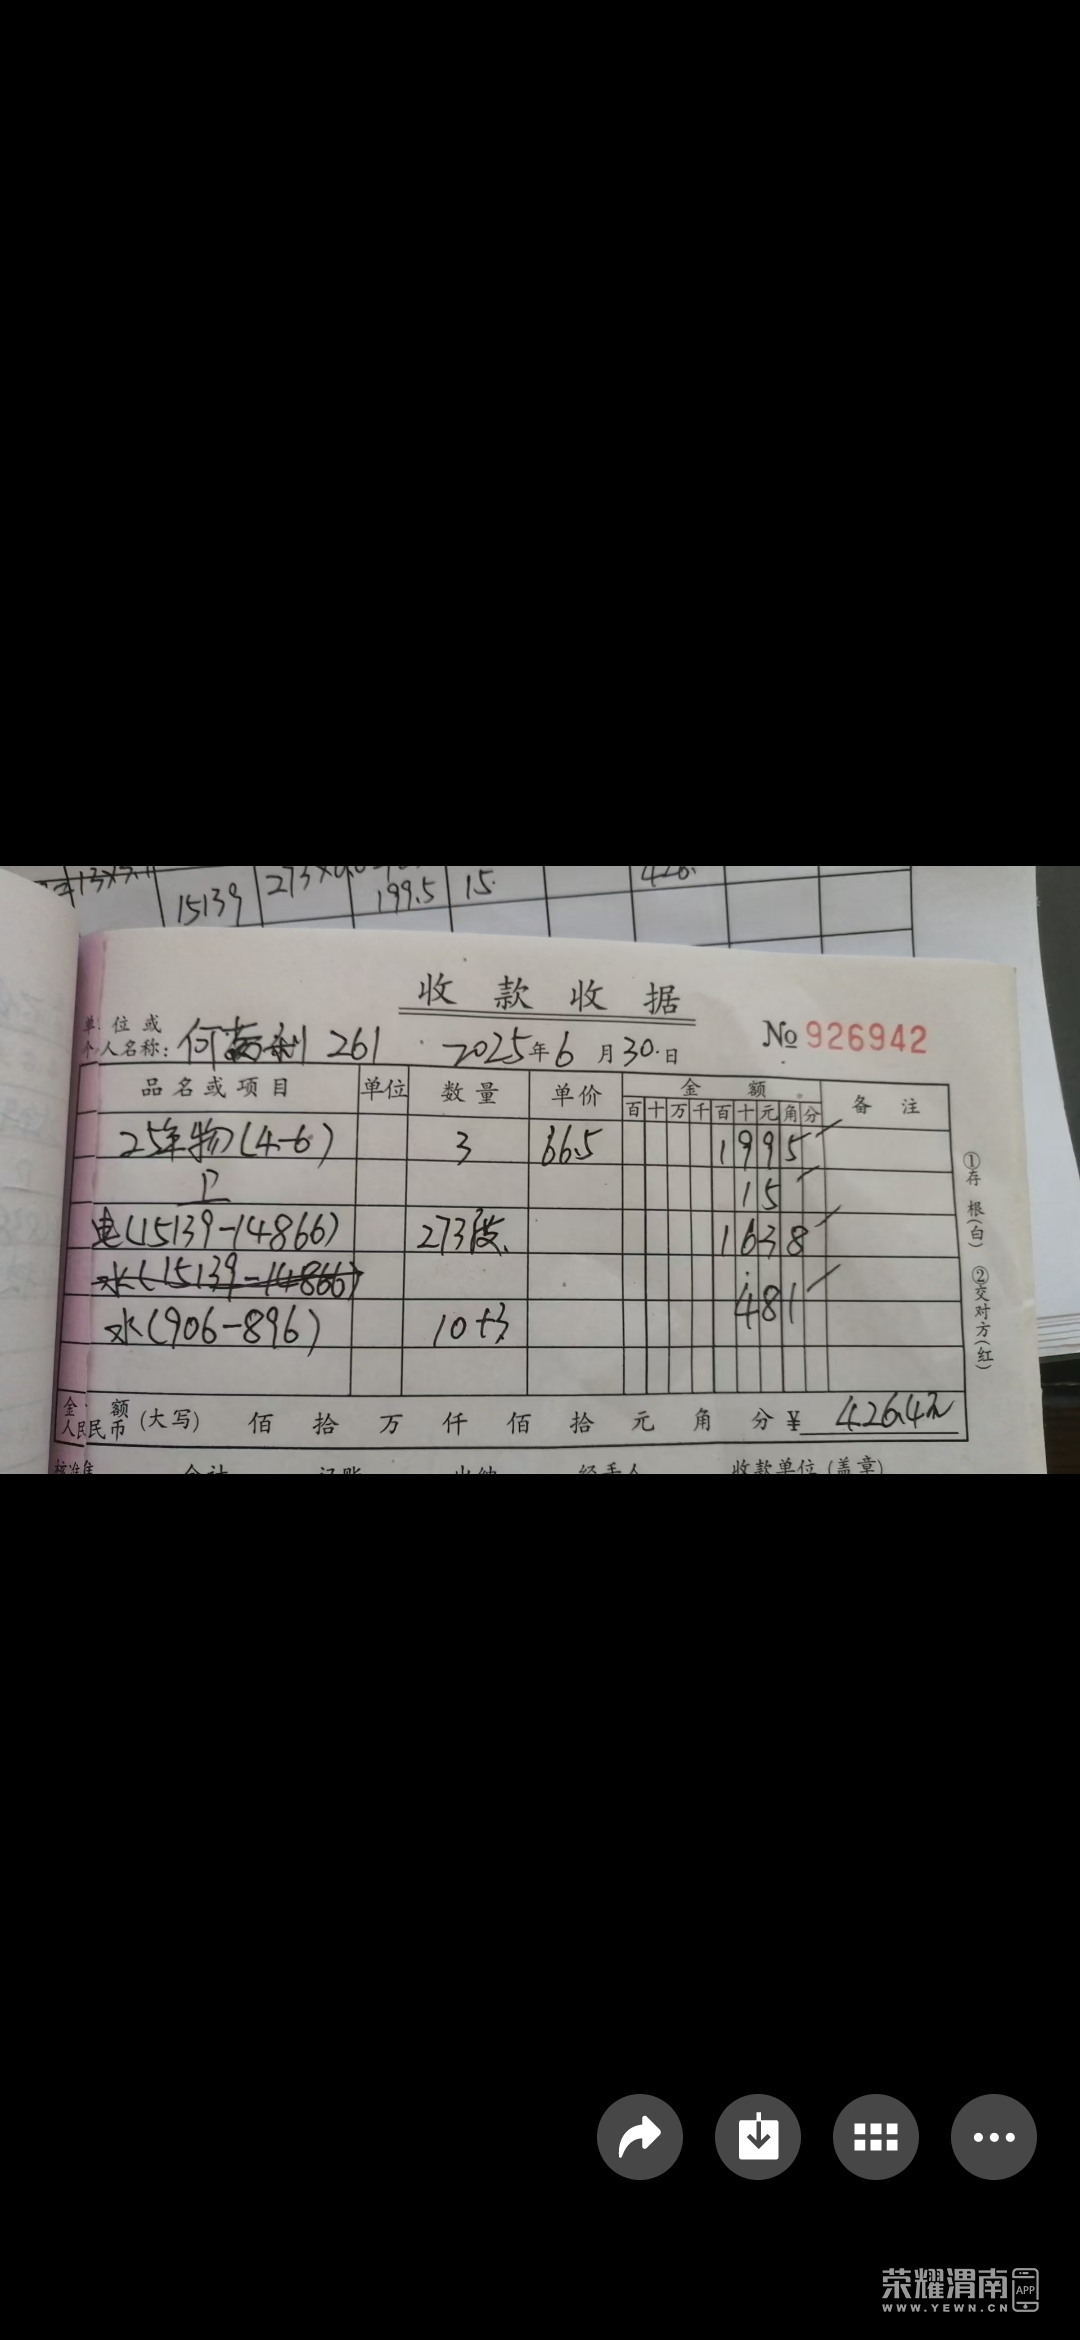 15139
199.5
15.
收款收据
单位或
个人名称: 何 261 2025年6月30日 №926942
品名或项目 单位 数量 单价 金额 备注
百十万千百十元角分
25年物(4-6) 3 66.5 1995
卫 15
电(15139-14866) 273度 1638
水(15139-14866)
481
水(906-896) 10+3
金额
人民币(大写) 佰 拾 万 仟 佰 拾 元 角 分 ¥ 426.4元
会计 记账 出纳 经手人 收款单位(盖章)
①存根(白) ②交对方(红)
荣耀渭南 APP
WWW.YEWN.CN